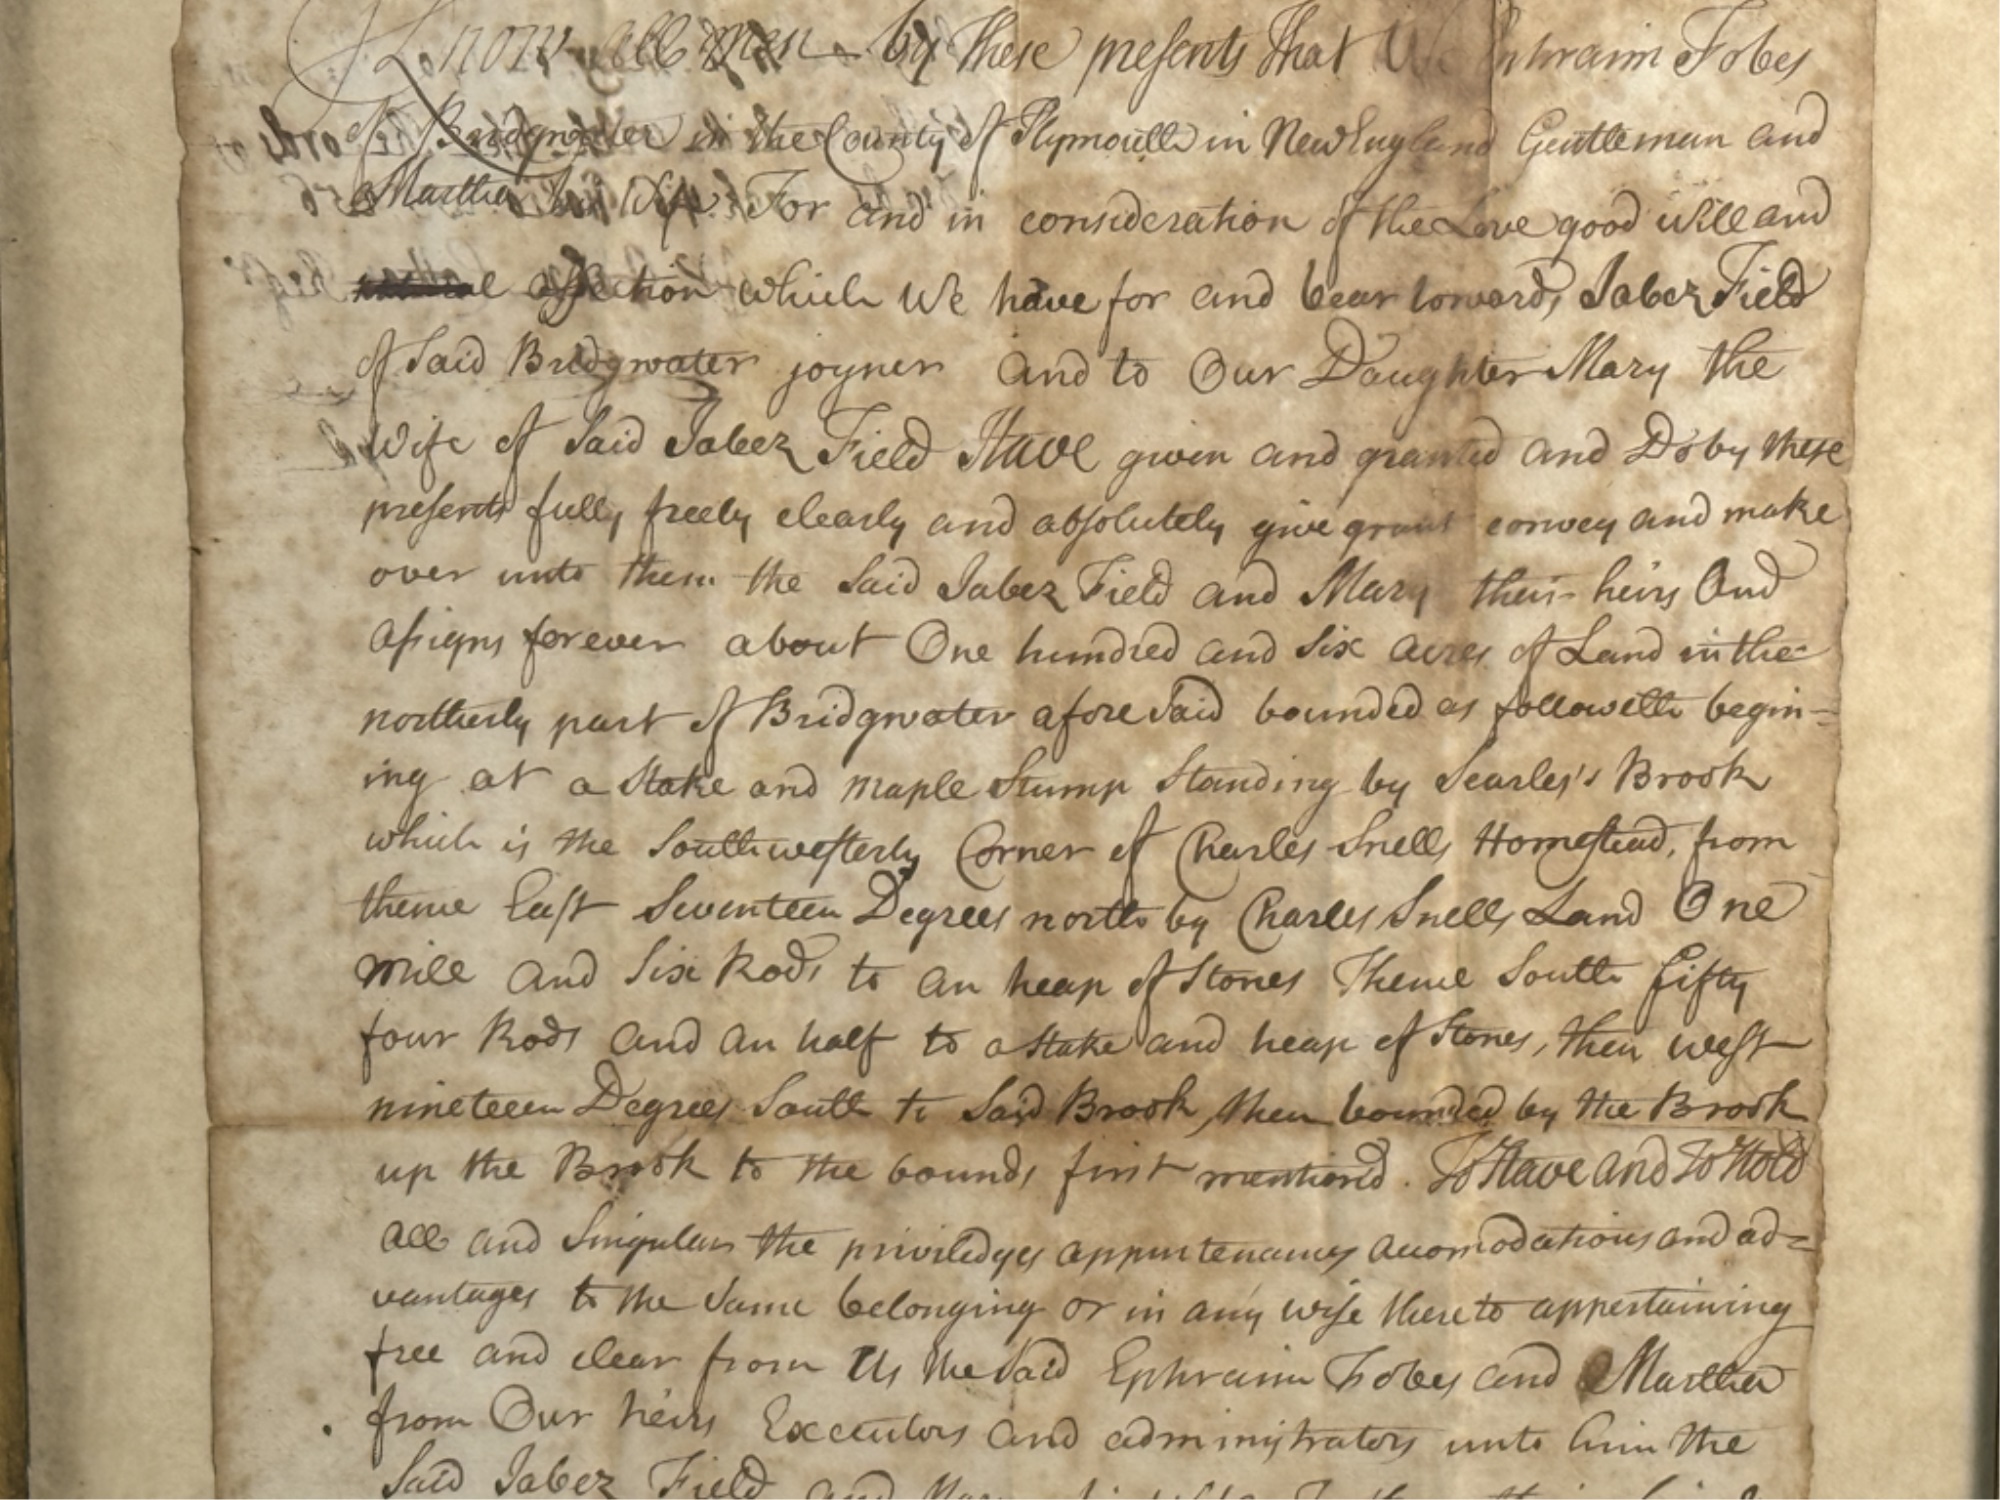 Know all men by these presents that We Ephraim Fobes
of Bridgwater in the County of Plymouth in New England Gentleman and
Martha his Wife. For and in consideration of the Love good will and
natural affection which We have for and bear towards Jabez Field
of Said Bridgwater joyner and to Our Daughter Mary the
Wife of Said Jabez Field Have given and granted and Do by these
presents fully freely clearly and absolutely give grant convey and make
over unto them the Said Jabez Field and Mary their heirs And
assigns forever about One hundred and Six acres of Land in the
northerly part of Bridgwater afore Said bounded as followeth begin=
ing at a Stake and maple Stump Standing by Searles's Brook
which is the Southwesterly Corner of Charles Snells Homestead, from
thence East Seventeen Degrees north by Charles Snells Land One
mile and Six Rods to an heap of Stones Thence South fifty
four Rods and an half to a Stake and heap of Stones, then west
nineteen Degrees South to Said Brook, then bounded by the Brook
up the Brook to the bounds first mentioned. To Have and To Hold
all and Singular the priviledges appurtenances accomodations and ad=
vantages to the Same belonging or in any wise thereto appertaining
free and clear from Us the Said Ephraim Fobes and Martha
from Our heirs Executors and administrators unto him the
Said Jabez Field and